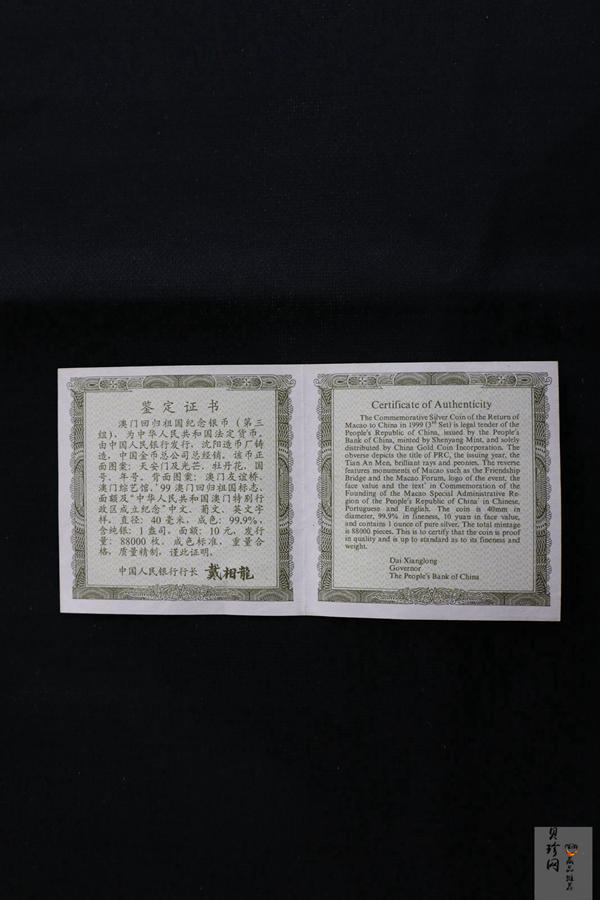 鉴定证书
澳门回归祖国纪念银币（第三
组），为中华人民共和国法定货币，
由中国人民银行发行，沈阳造币厂铸
造，中国金币总公司总经销。该币正
面图案：天安门及光芒、牡丹花、国
号、年号，背面图案：澳门友谊桥、
澳门综艺馆、'99澳门回归祖国标志、
面额及“中华人民共和国澳门特别行
政区成立纪念”中文、葡文、英文字
样。直径：40毫米，成色：99.9%，
含纯银：1盎司，面额：10元，发行
量：88000枚。成色标准，重量合
格，质量精制，谨此证明。
中国人民银行行长 戴相龍
Certificate of Authenticity
The Commemorative Silver Coin of the Return of
Macao to China in 1999 (3rd Set) is legal tender of the
People's Republic of China, issued by the People's
Bank of China, minted by Shenyang Mint, and solely
distributed by China Gold Coin Incorporation. The
obverse depicts the title of PRC, the issuing year, the
Tian An Men, brilliant rays and peonies. The reverse
features monuments of Macao such as the Friendship
Bridge and the Macao Forum, logo of the event, the
face value and the text' in Commemoration of the
Founding of the Macao Special Administrative Re-
gion of the People's Republic of China' in Chinese,
Portuguese and English. The coin is 40mm in
diameter, 99.9% in fineness, 10 yuan in face value,
and contains 1 ounce of pure silver. The total mintage
is 88000 pieces. This is to certify that the coin is proof
in quality and is up to standard as to its fineness and
weight.
Dai Xianglong
Governor
The People's Bank of China
贝珍网
商品推荐